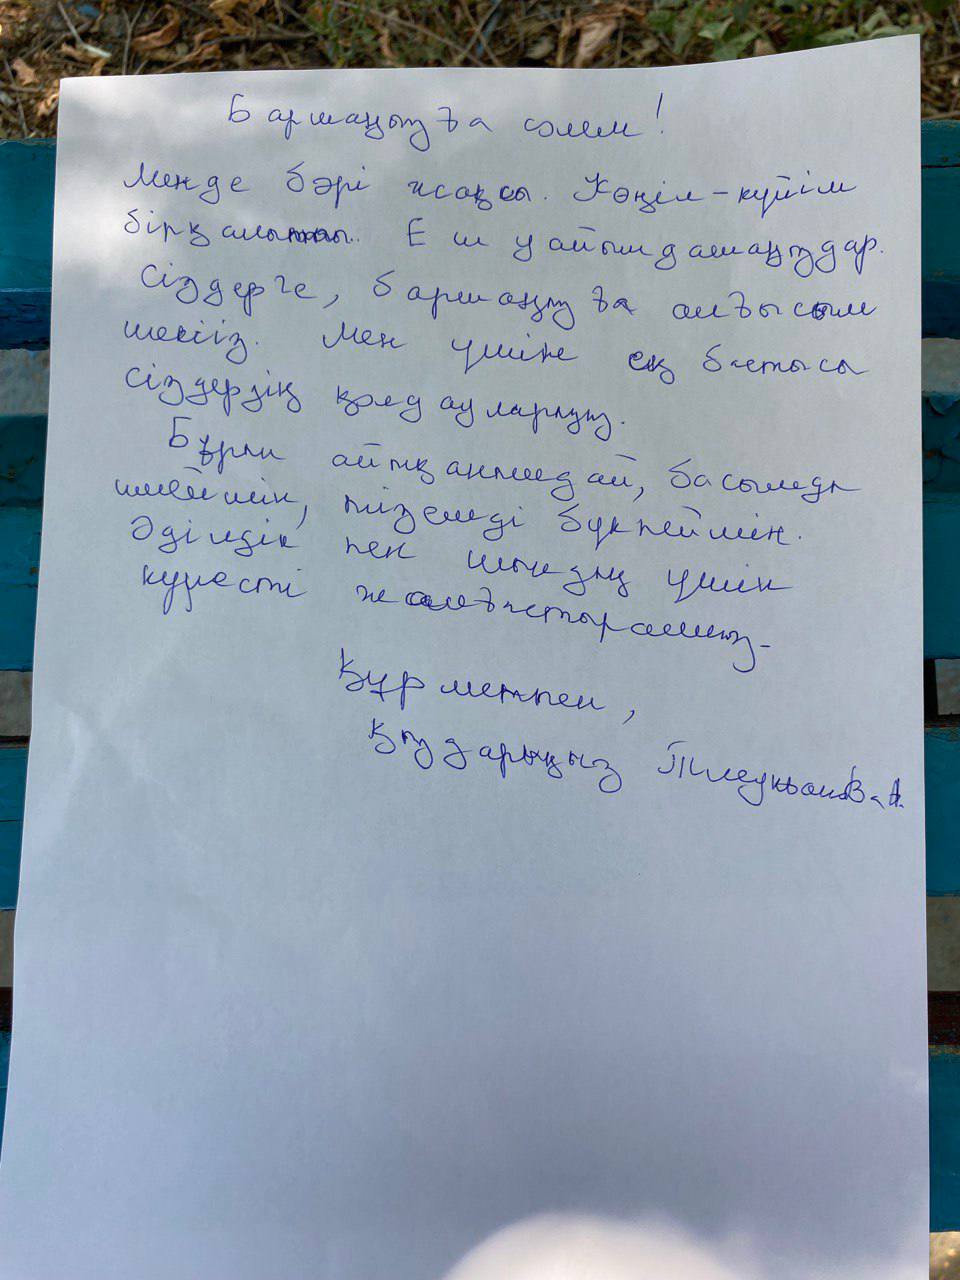 Баршаңызға сәлем!
Менде бәрі жақсы. Көңіл-күйім
бірқалыпты. Еш уайымдамаңыздар.
Сіздерге, баршаңызға алғысым
шексіз. Мен үшін ең бастысы
сіздердің қолдауларыңыз.
Бұрын айтқанымдай, басымды
имеймін, тіземді бүкпеймін.
Әділдік пен шындық үшін
күресті жалғастырамыз.
Құрметпен,
Қыздарыңыз